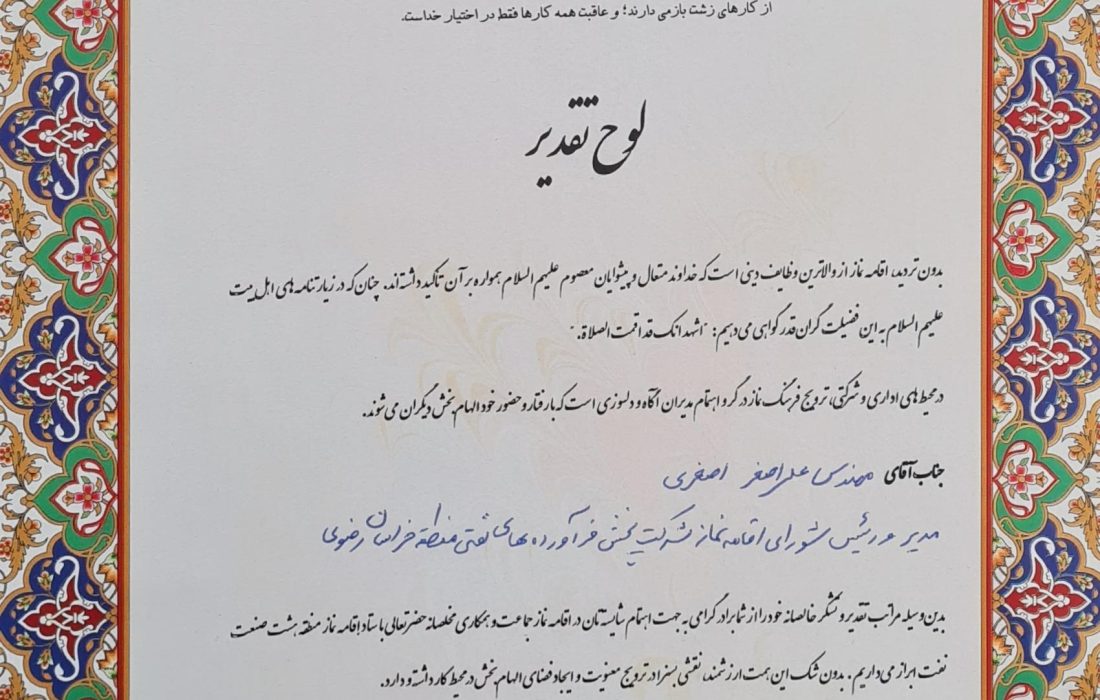 از کارهای زشت بازمی دارند؛ و عاقبت همه کارها فقط در اختیار خداست.
لوح تقدیر
بدون تردید، اقامه نماز از والاترین وظایف دینی است که خداوند متعال و پیشوایان معصوم علیهم السلام همواره بر آن تأکید داشته‌اند. چنان که در زیارتنامه های اهل بیت
علیهم السلام به این فضیلت گران قدر گواهی می دهیم: "اشهد انک قد اقمت الصلاة."
در محیط های اداری و شرکتی، ترویج فرهنگ نماز در گرو اهتمام مدیران آگاه و دلسوزی است که با رفتار و حضور خود الهام بخش دیگران می شوند.
جناب آقای مهندس علی اصغر اصغری
مدیر و رئیس شورای اقامه نماز شرکت پخش فرآورده های نفتی منطقه خراسان رضوی
بدین وسیله مراتب تقدیر و تشکر خالصانه خود را از شما برادر گرامی به جهت اهتمام شایسته‌تان در اقامه نماز جماعت و همکاری مخلصانه حضرتعالی با ستاد اقامه نماز منطقه هشت صنعت
نفت ابراز می داریم. بدون شک این همت ارزشمند، نقشی بسزا در ترویج معنویت و ایجاد فضای الهام بخش در محیط کار داشته و دارد.